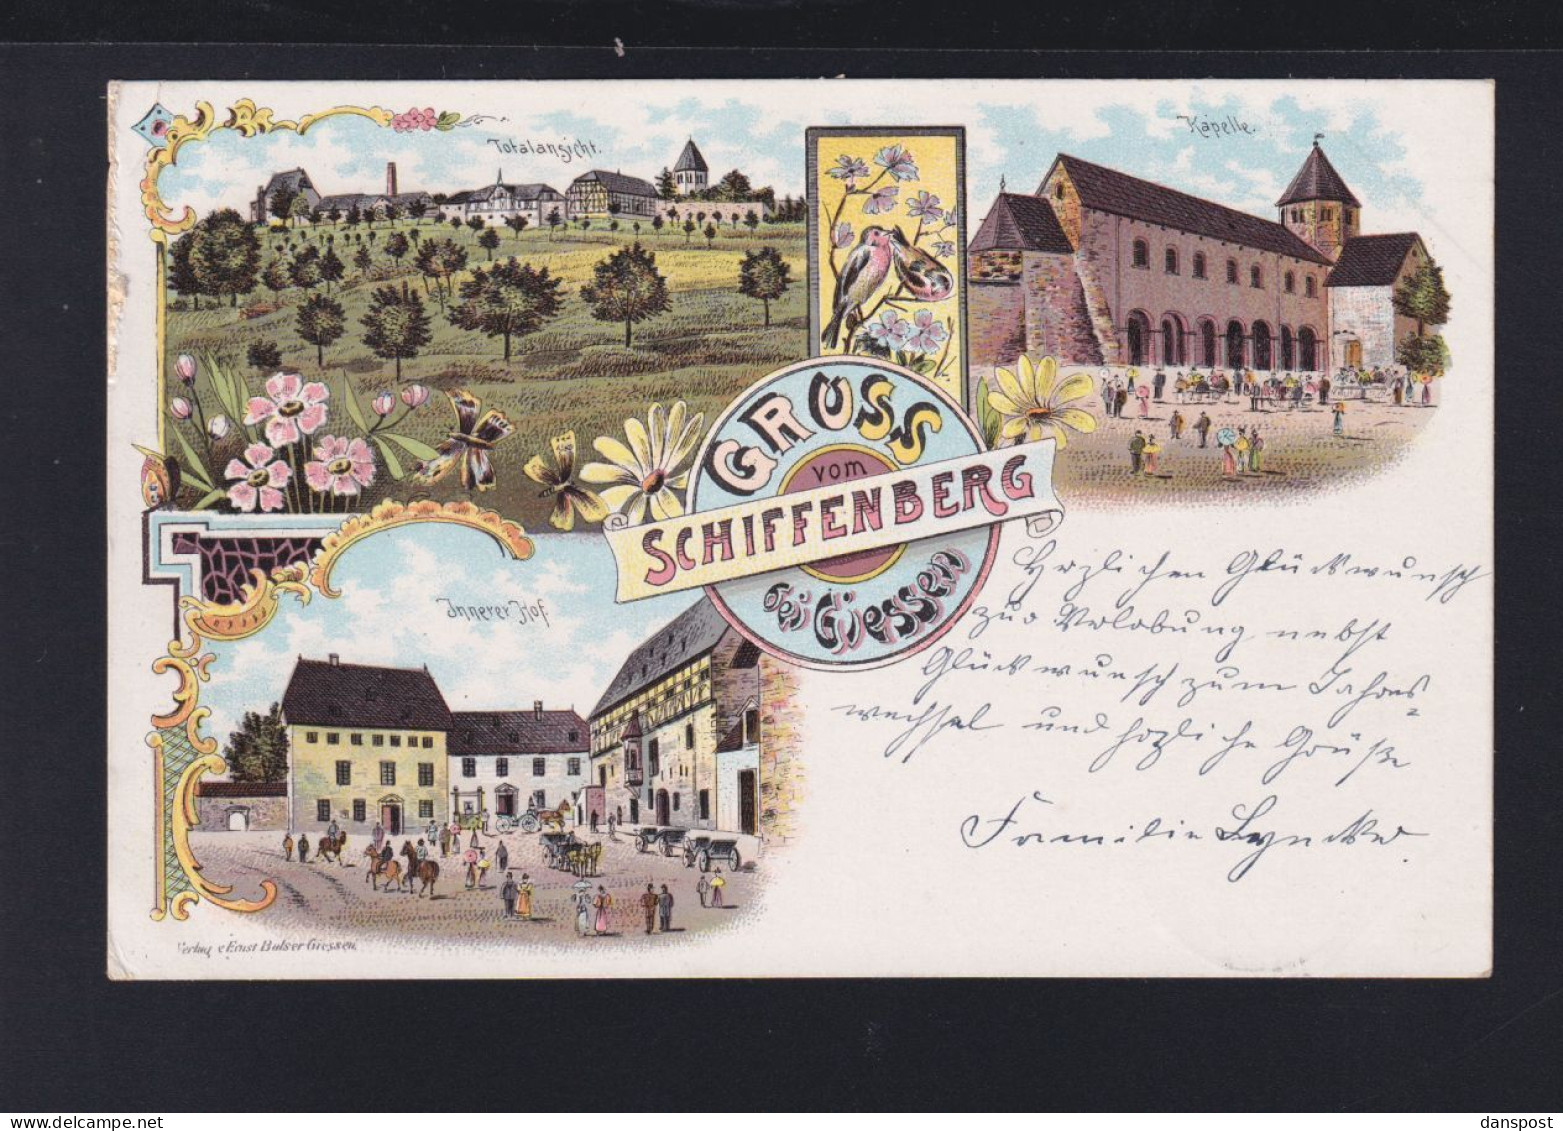 Totalansicht.
Kapelle.
GRUSS
vom
SCHIFFENBERG
bei Giessen
Innerer Hof.
Herzlichen Glückwunsch
zur Verlobung nebst
Glückwunsch zum Jahres
wechsel und herzliche Grüße
Familie
Verlag v Ernst Balser Giessen.
danspost